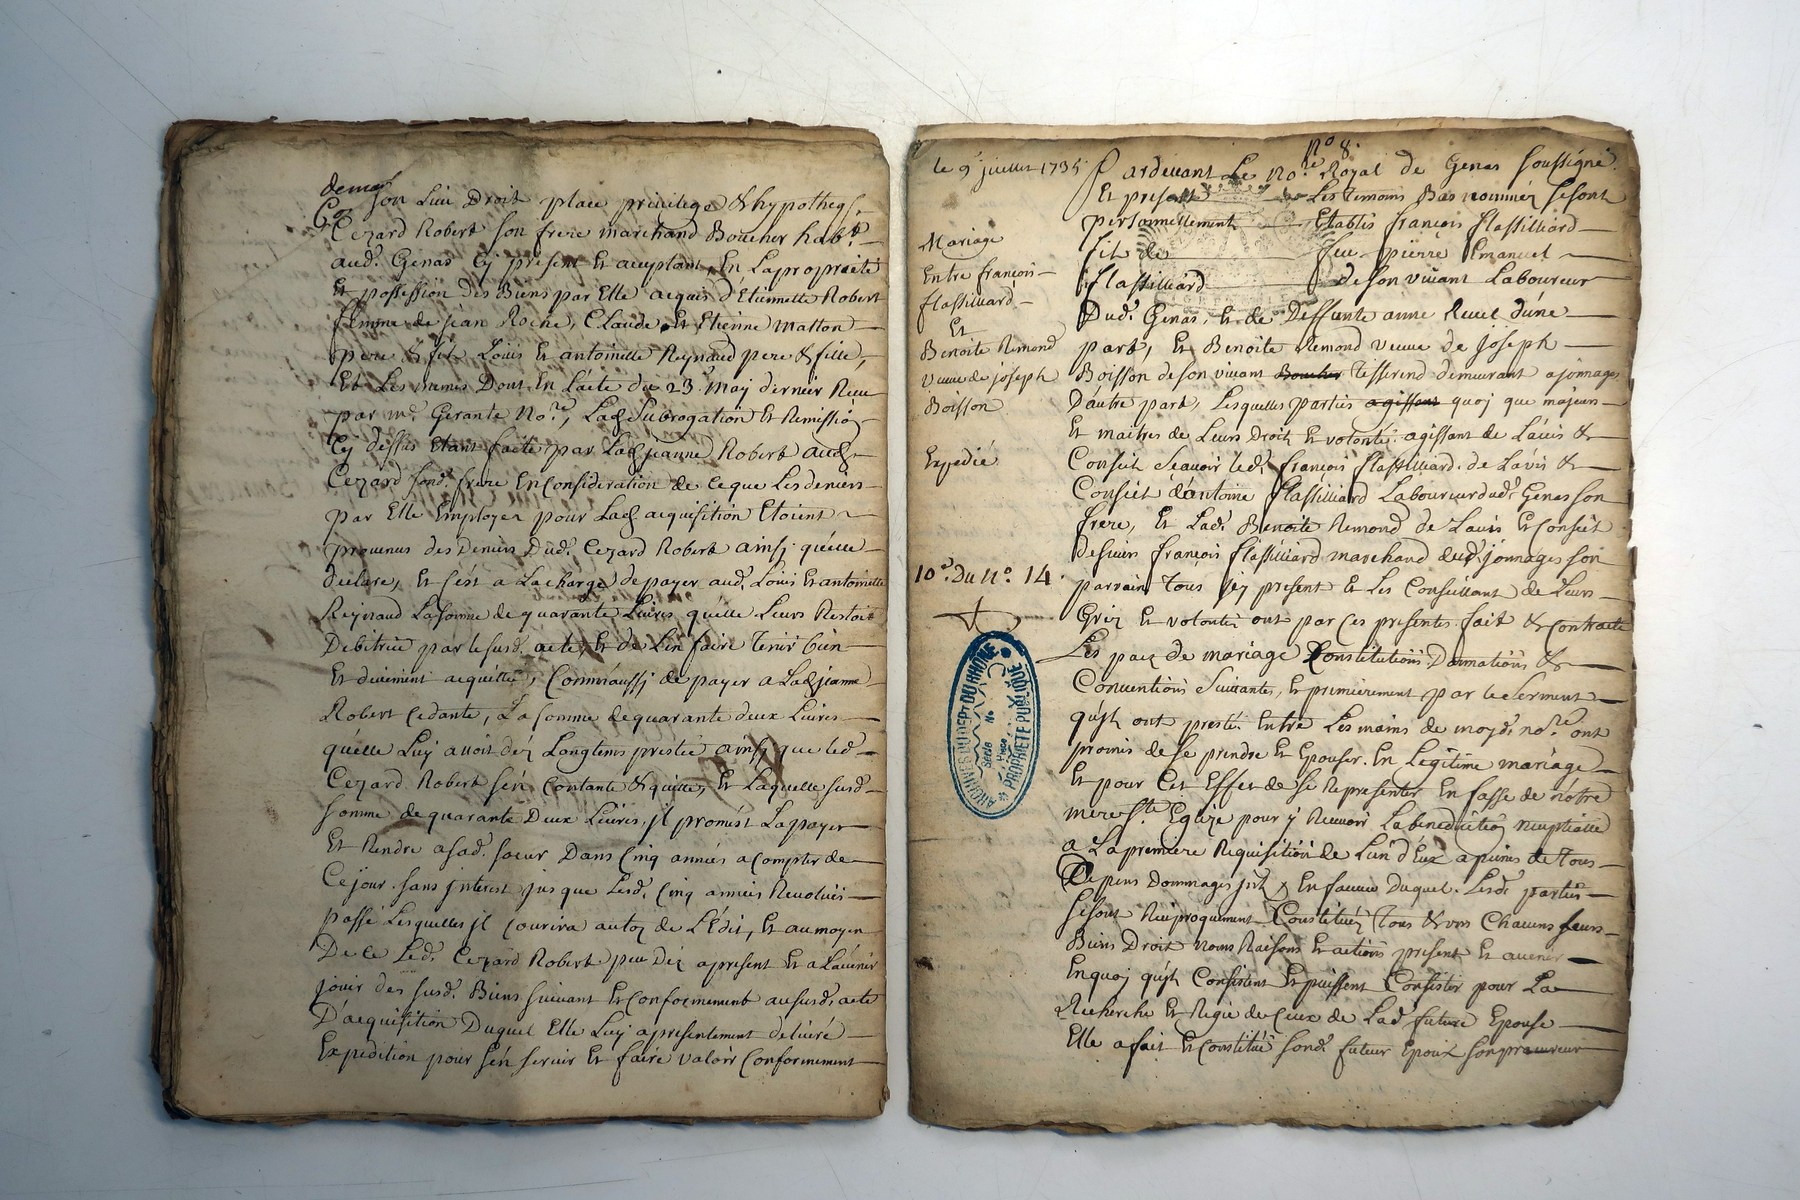 son Lieu Droit place privilege & hypotheq
Cezard Robert son frere marchand Boucher
aud. Genas Cy present Et acceptant, En La propriété
Et possession des Biens par Elle acquis d'Etiennette Robert
femme de jean Roche, Claude, Et Etienne Matton
pere & fils Louis Et antoinette Reynaud pere & fille,
Et Les mêmes Dont En L'acte du 23 May dernier Receu
par me. Gerante Nore, Lad. subrogation Et Remission
Cy dessus Etant faite par Lad. jeanne Robert aud.
Cezard sond. frere En Consideration de Ce que Les deniers
par Elle Employez pour Lad. acquisition Etoient
provenus des Deniers Dud. Cezard Robert ainsy qu'elle
declare, Et c'est a La charge de payer aud. Louis Et antoinette
Reynaud La somme de quarante Livres qu'elle Leurs Restoit
Debitrice par le susd. acte, Et de L'en faire Tenir bien
Et duement acquittée, Comm'aussy de payer a Lad. jeanne
Robert Cedante, La somme de quarante deux Livres
qu'elle Luy avoit déz Longtems prestée ainsy que led.
Cezard Robert s'en Contante & quitte, Et Laquelle susd.
somme de quarante Deux Livres, jl promest La payer
Et Rendre a sad. soeur Dans Cinq années a Compter de
Ce jour. sans jnterest jusque Lesd. Cinq années Revolues
passé Lesquelles jl Courira au taux de L'Edit, Et au moyen
De Ce Led. Cezard Robert peu déz a present Et a L'avenir
jouir des susd. Biens suivant Et Conformement au susd. acte
D'acquisition Duquel Elle Luy a presentement delivré
Expedition pour s'en servir Et faire valoir Conformement
No 8.
le 9e juillet 1735
Pardevant Le Nore. Royal de Genas soussigné
Et present Les temoins Bas nommez se sont
personnellement Etablis françois flassilliard
fils de feu pierre Emanuel
flassilliard de son vivant Laboureur
Dud. Genas, Et de Deffunte anne Revel d'une
part, Et Benoite Remond veuve de joseph
Boisson de son vivant Boucher Tisserend demeurant a jonnages
D'autre part, Lesquelles parties agissant quoy que majeurs
Et maitres de Leurs Droits Et volonté. agissant de L'avis &
Conseil sçavoir led. françois flassilliard. de L'avis &
Conseil d'antoine flassilliard Laboureur dud. Genas son
frere, Et Lad. Benoite Remond de L'avis Et Conseil
de sieur françois flassilliard marchand dud. jonnages son
parrain Tous Cy present Et Les Conseillant de Leurs
Gréz Et volontéz ont par Ces presentes fait & Contracté
Les pacz de mariage Constitutions Donnations &
Conventions suivantes, Et premierement par le serment
qu'jls ont presté Entre Les mains de moyd. nore. ont
promis de se prendre Et Epouser. En Legitime mariage
Et pour Cet Effet de se Representer En fasse de nôtre
mere ste Eglize pour y Recevoir La benediction nuptialle
a La premiere Requisition de L'un d'Eux a peines de tous
Depens Dommages jnts En faveur Duquel. Lesd. parties
se sont Reciproquement Constituéz Tous & uns Chacuns Leurs
Biens Droit noms Raisons Et actions present Et avenir
En quoy qu'jls Consistent Et puissent Consister pour La
Recherche Et Regie de Ceux de Lad. future Epouse
Elle a fait Et Constitué sond. futur Epoux son procureur
Mariage
Entre françois
flassilliard
Et
Benoite Remond
veuve de joseph
Boisson
Expedié
10e. Du No. 14.
ARCHIVES DU DEPT DU RHONE
Série No
PROPRIÉTÉ PUBLIQUE